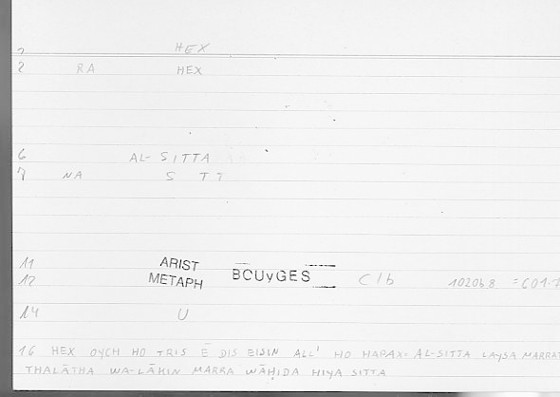 2 HEX
2 RA HEX
6 AL-SITTA
7 NA S T ?
11 ARIST
12 METAPH BCUyGES C/b 102068 =601.2
14 U
16 HEX OYCH HO TRIS Ē DIS EISIN ALL' HO HAPAX: AL-SITTA LAYSA MARRAT
THALĀTHA WA-LĀKIN MARRA WĀḤIDA HIYA SITTA